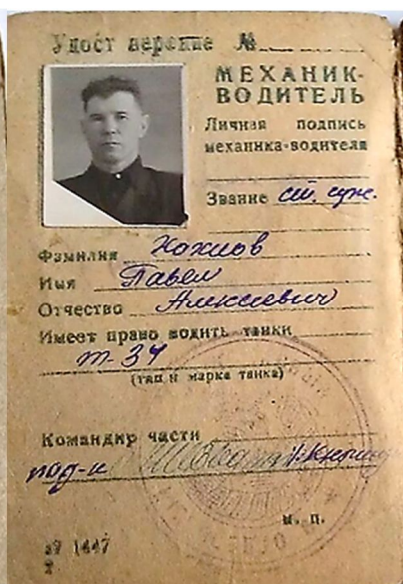 Удостоверение №
МЕХАНИК-
ВОДИТЕЛЬ
Личная подпись
механика-водителя
Звание ст. серж.
Фамилия Хохлов
Имя Павел
Отчество Алексеевич
Имеет право водить танки
Т-34
(тип и марка танка)
Командир части
М. П.
1447